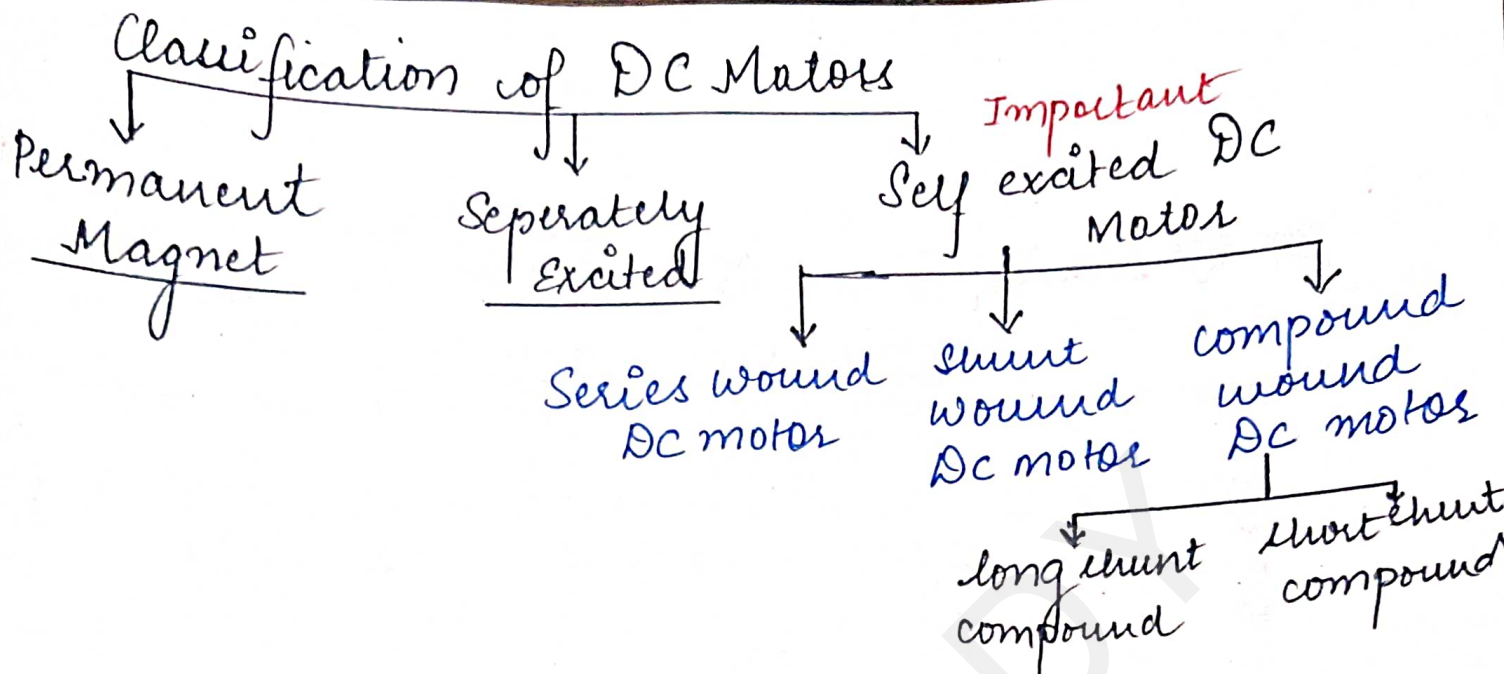 Classification of DC Motors
Permanent
Magnet
Seperately
Excited
Important
Self excited DC
Motor
Series wound
DC motor
shunt
wound
DC motor
compound
wound
DC motor
long shunt
compound
short shunt
compound